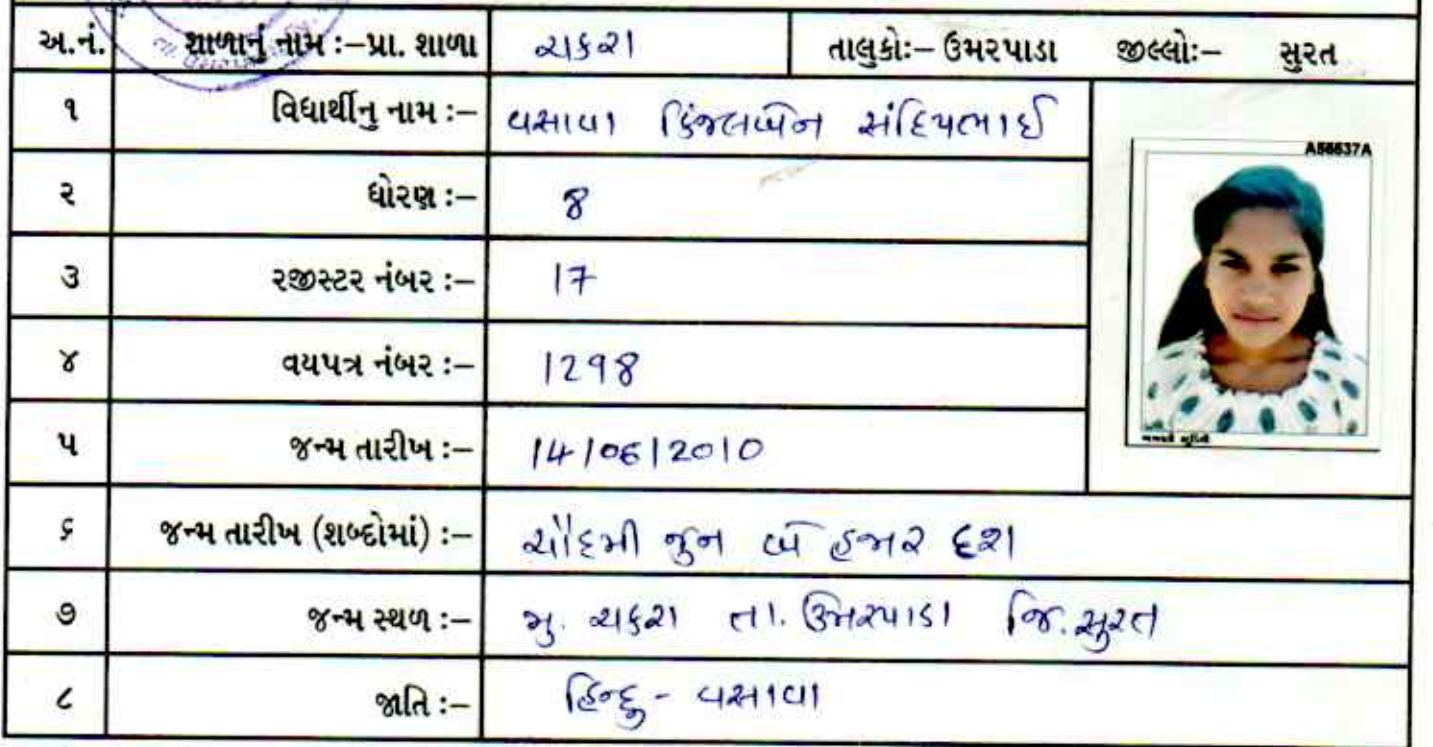 અ.નં. શાળાનું નામ :– પ્રા. શાળા ચકરા તાલુકો:– ઉમરપાડા જીલ્લો:– સુરત
૧ વિધાર્થીનુ નામ :– વસાવા કિંજલબેન સંદિપભાઈ
A56637A
૨ ધોરણ :– 8
૩ રજીસ્ટર નંબર :– 17
૪ વયપત્ર નંબર :– 1298
૫ જન્મ તારીખ :– 14/06/2010
૬ જન્મ તારીખ (શબ્દોમાં) :– ચૌદમી જુન બે હજાર દશ
૭ જન્મ સ્થળ :– મુ. ચકરા તા. ઉમરપાડા જિ. સુરત
૮ જાતિ :– હિન્દુ - વસાવા